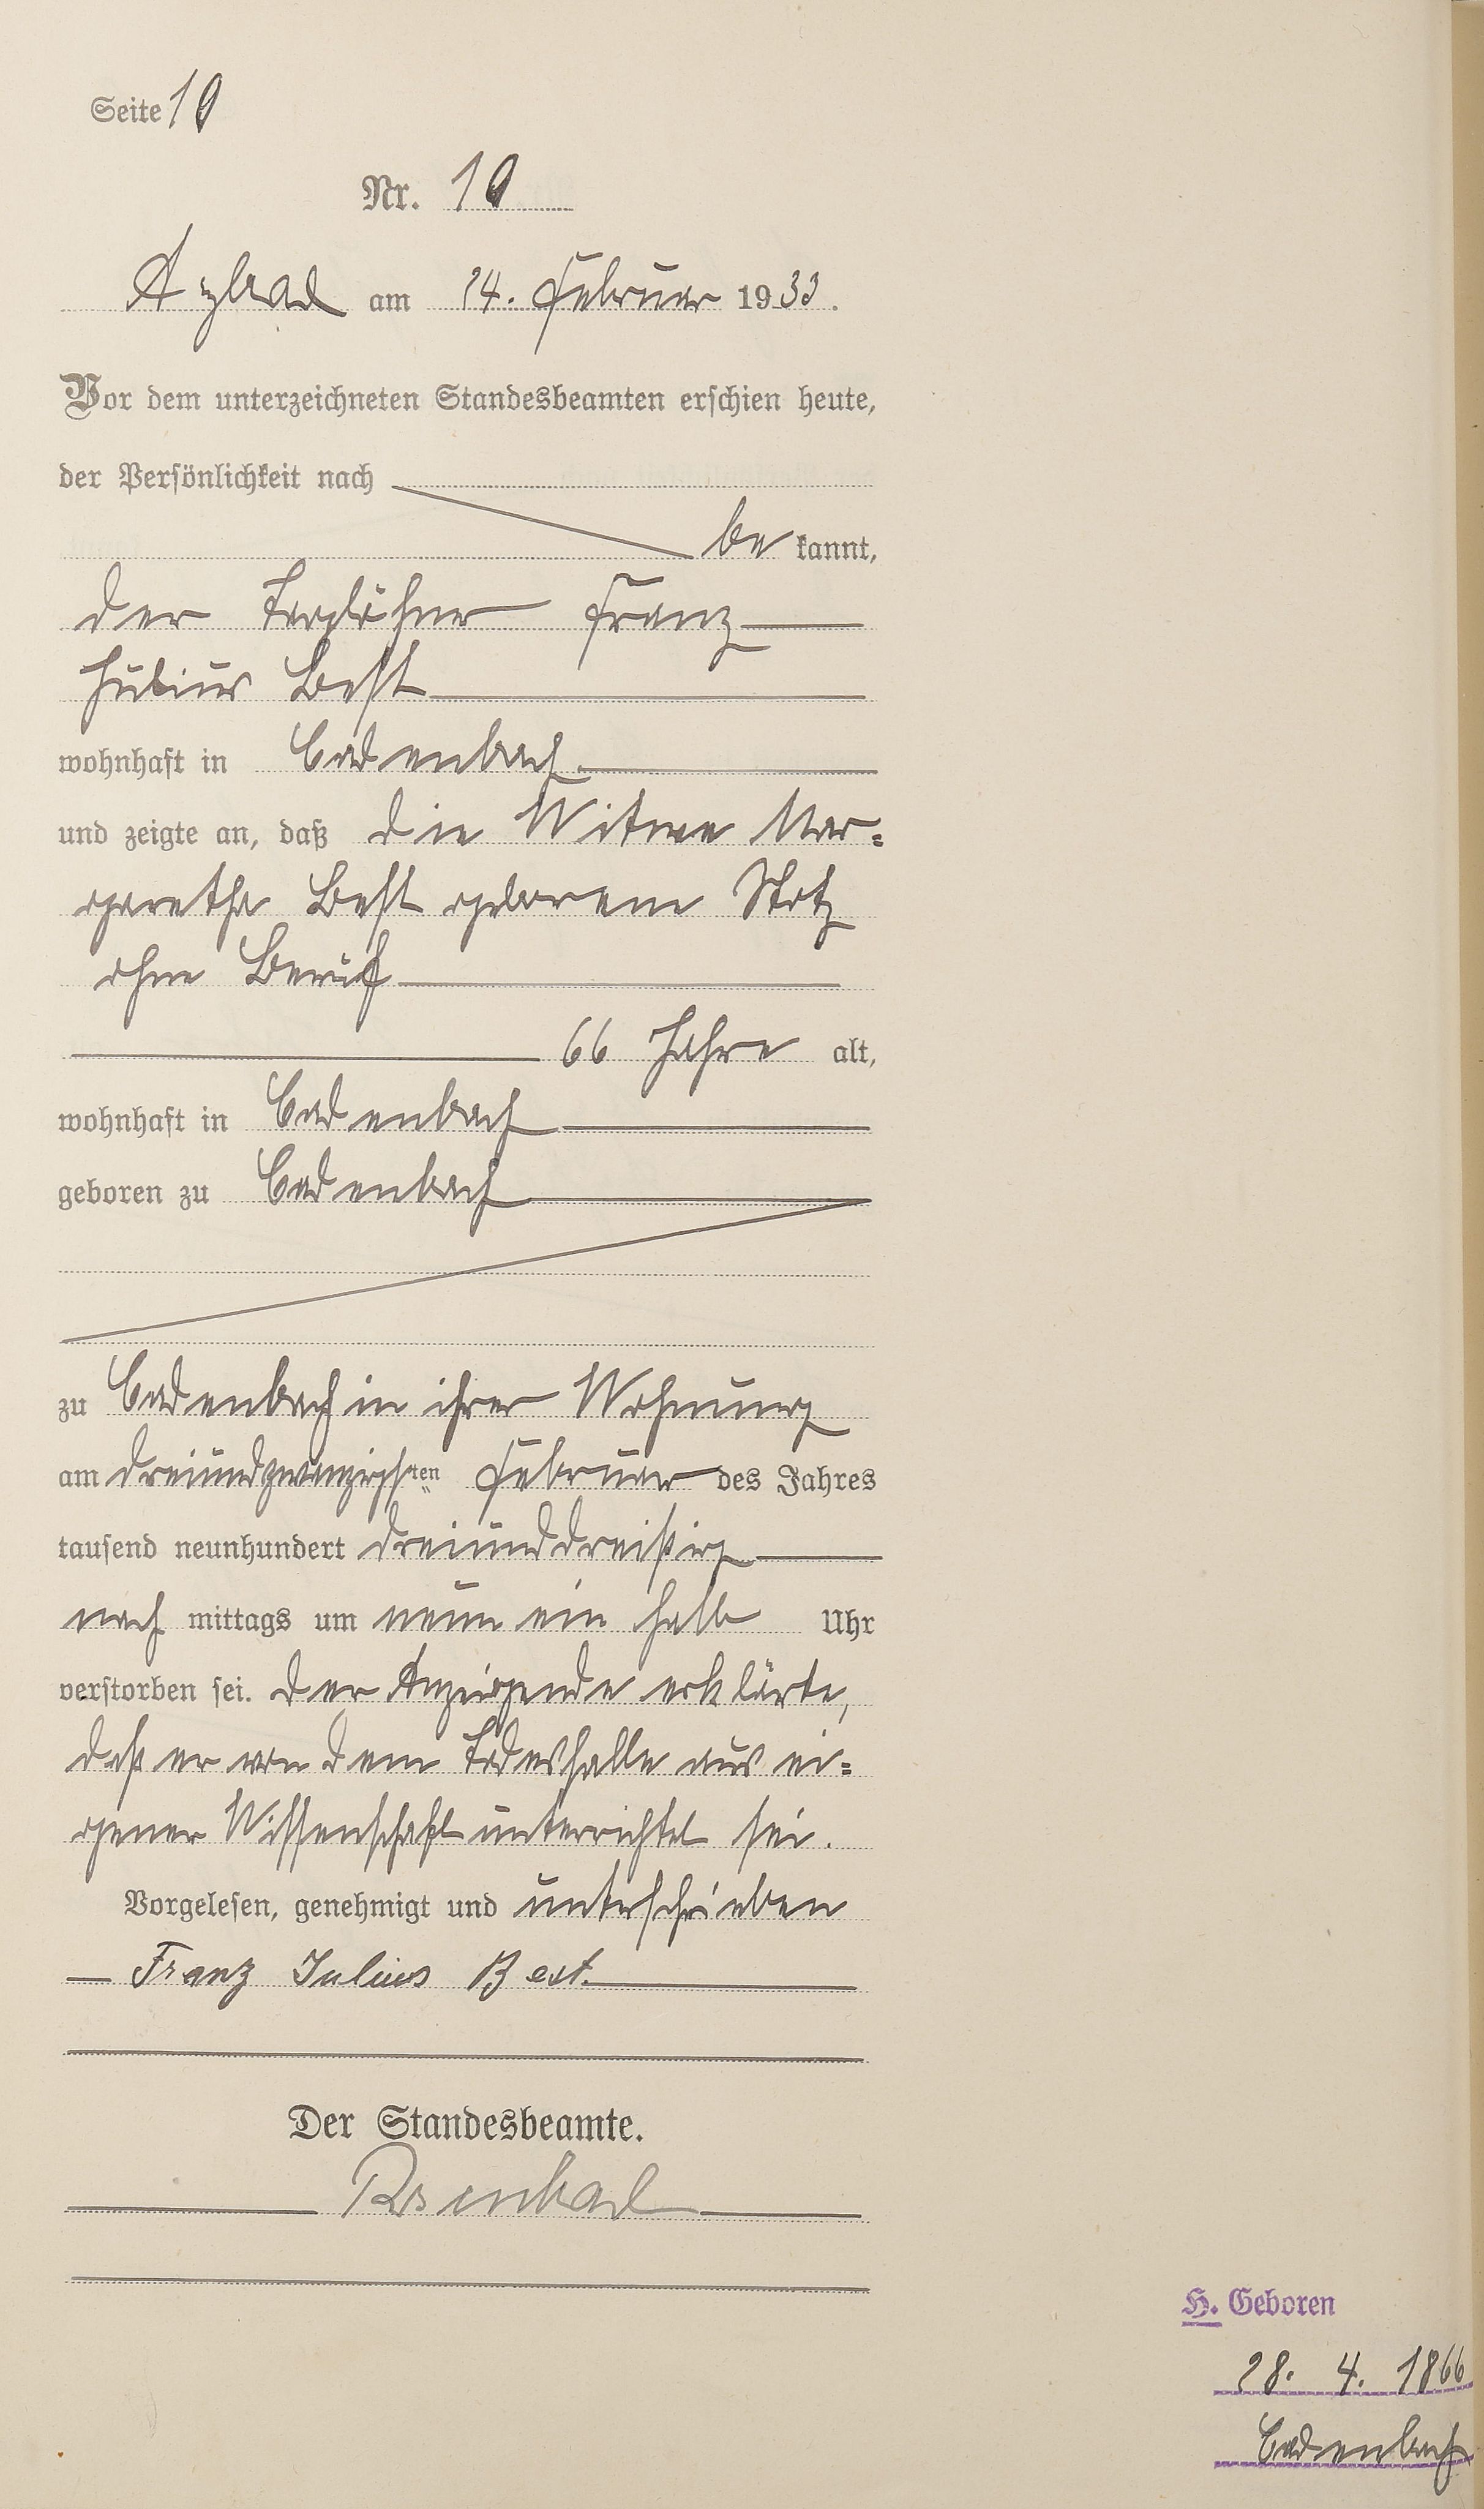 Seite 10
Nr. 10
Aßlar am 24. Februar 1933.
Vor dem unterzeichneten Standesbeamten erschien heute,
der Persönlichkeit nach
be kannt,
der Taglöhner Franz
Julius Best
wohnhaft in Cadenbach
und zeigte an, daß die Witwe Mar=
garetha Best geborene Stotz
ohne Beruf
66 Jahre alt,
wohnhaft in Cadenbach
geboren zu Cadenbach
zu Cadenbach in ihrer Wohnung
am dreiundzwanzigsten Februar des Jahres
tausend neunhundert dreiunddreißig
nach mittags um neun ein halb Uhr
verstorben sei. Der Anzeigende erklärte,
daß er von dem Todesfalle aus ei=
gener Wissenschaft unterrichtet sei.
Vorgelesen, genehmigt und unterschrieben
Franz Julius Best.
Der Standesbeamte.
H. Geboren
28. 4. 1866
Cadenbach